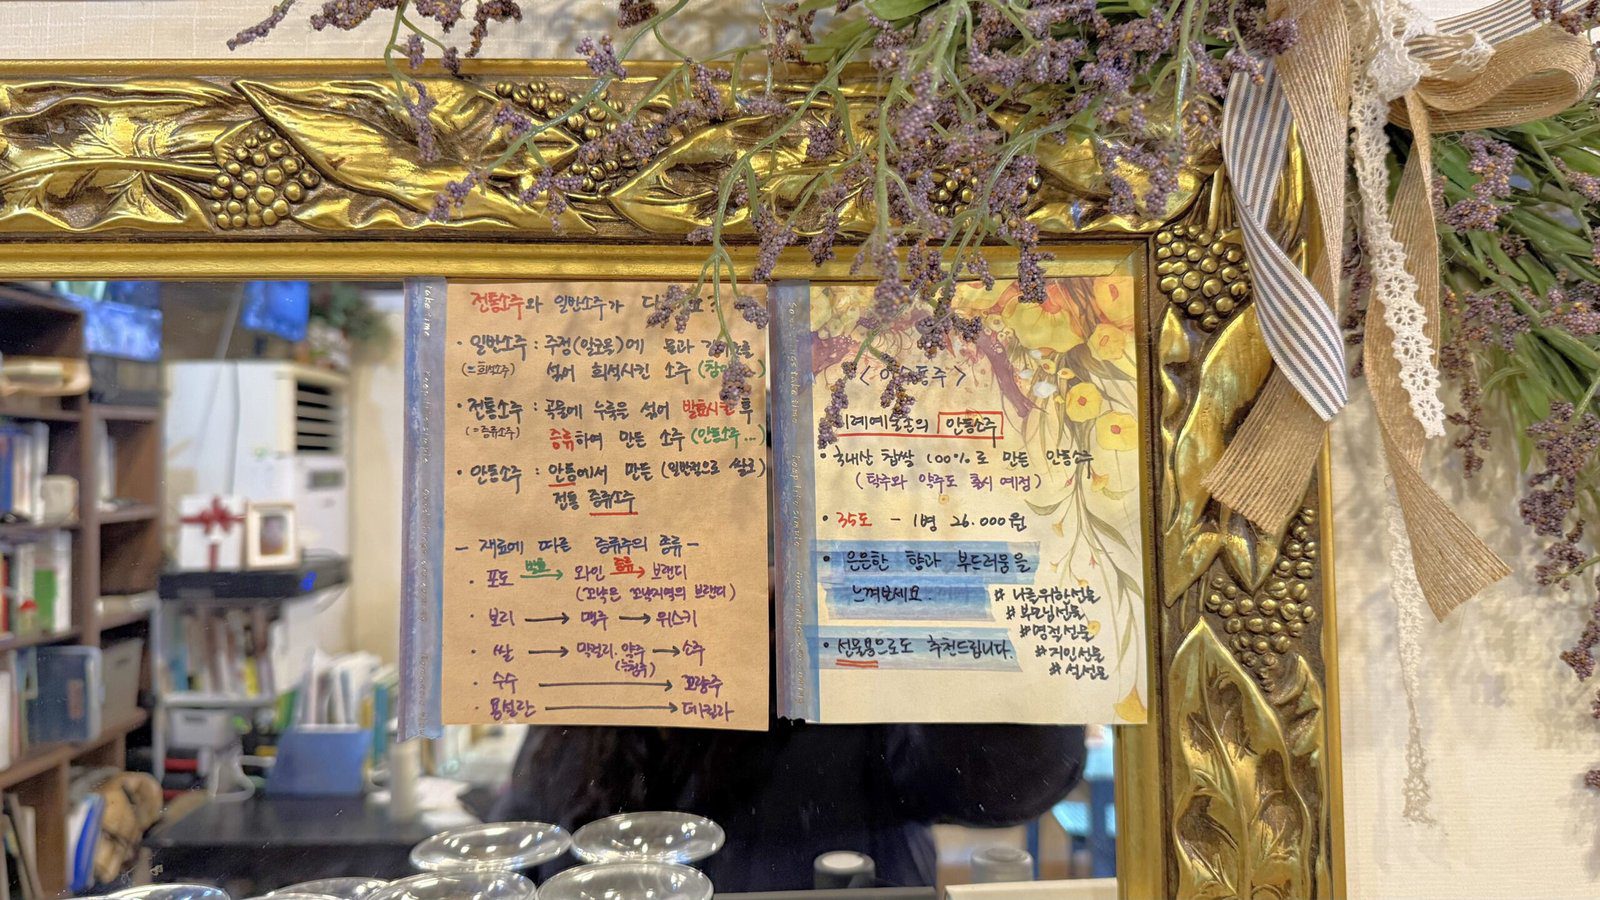 전통소주와 일반소주가
· 일반소주 : 주정(알코올)에 물과
(=희석소주) 섞어 희석시킨 소주
· 전통소주 : 곡물에 누룩을 섞어 발효시킨 후
(=증류소주) 증류하여 만든 소주 (안동소주...)
· 안동소주 : 안동에서 만든 (일반적으로 쌀로)
전통 증류소주
- 재료에 따른 증류주의 종류 -
· 포도 발효→ 와인 증류→ 브랜디
(꼬냑은 꼬냑지역의 브랜디)
· 보리 → 맥주 → 위스키
· 쌀 → 막걸리, 약주 → 소주
· 수수 → 꼬량주
· 용설란 → 데킬라
take time
good things
예술촌의 안동소주
· 국내산 찹쌀 100%로 만든 안동소주
(탁주와 약주도 출시 예정)
· 35도 - 1병 26.000원
· 은은한 향과 부드러움을
느껴보세요.
· 선물용으로도 추천드립니다.
# 나를위한선물
# 부모님선물
# 명절선물
# 지인선물
# 설선물